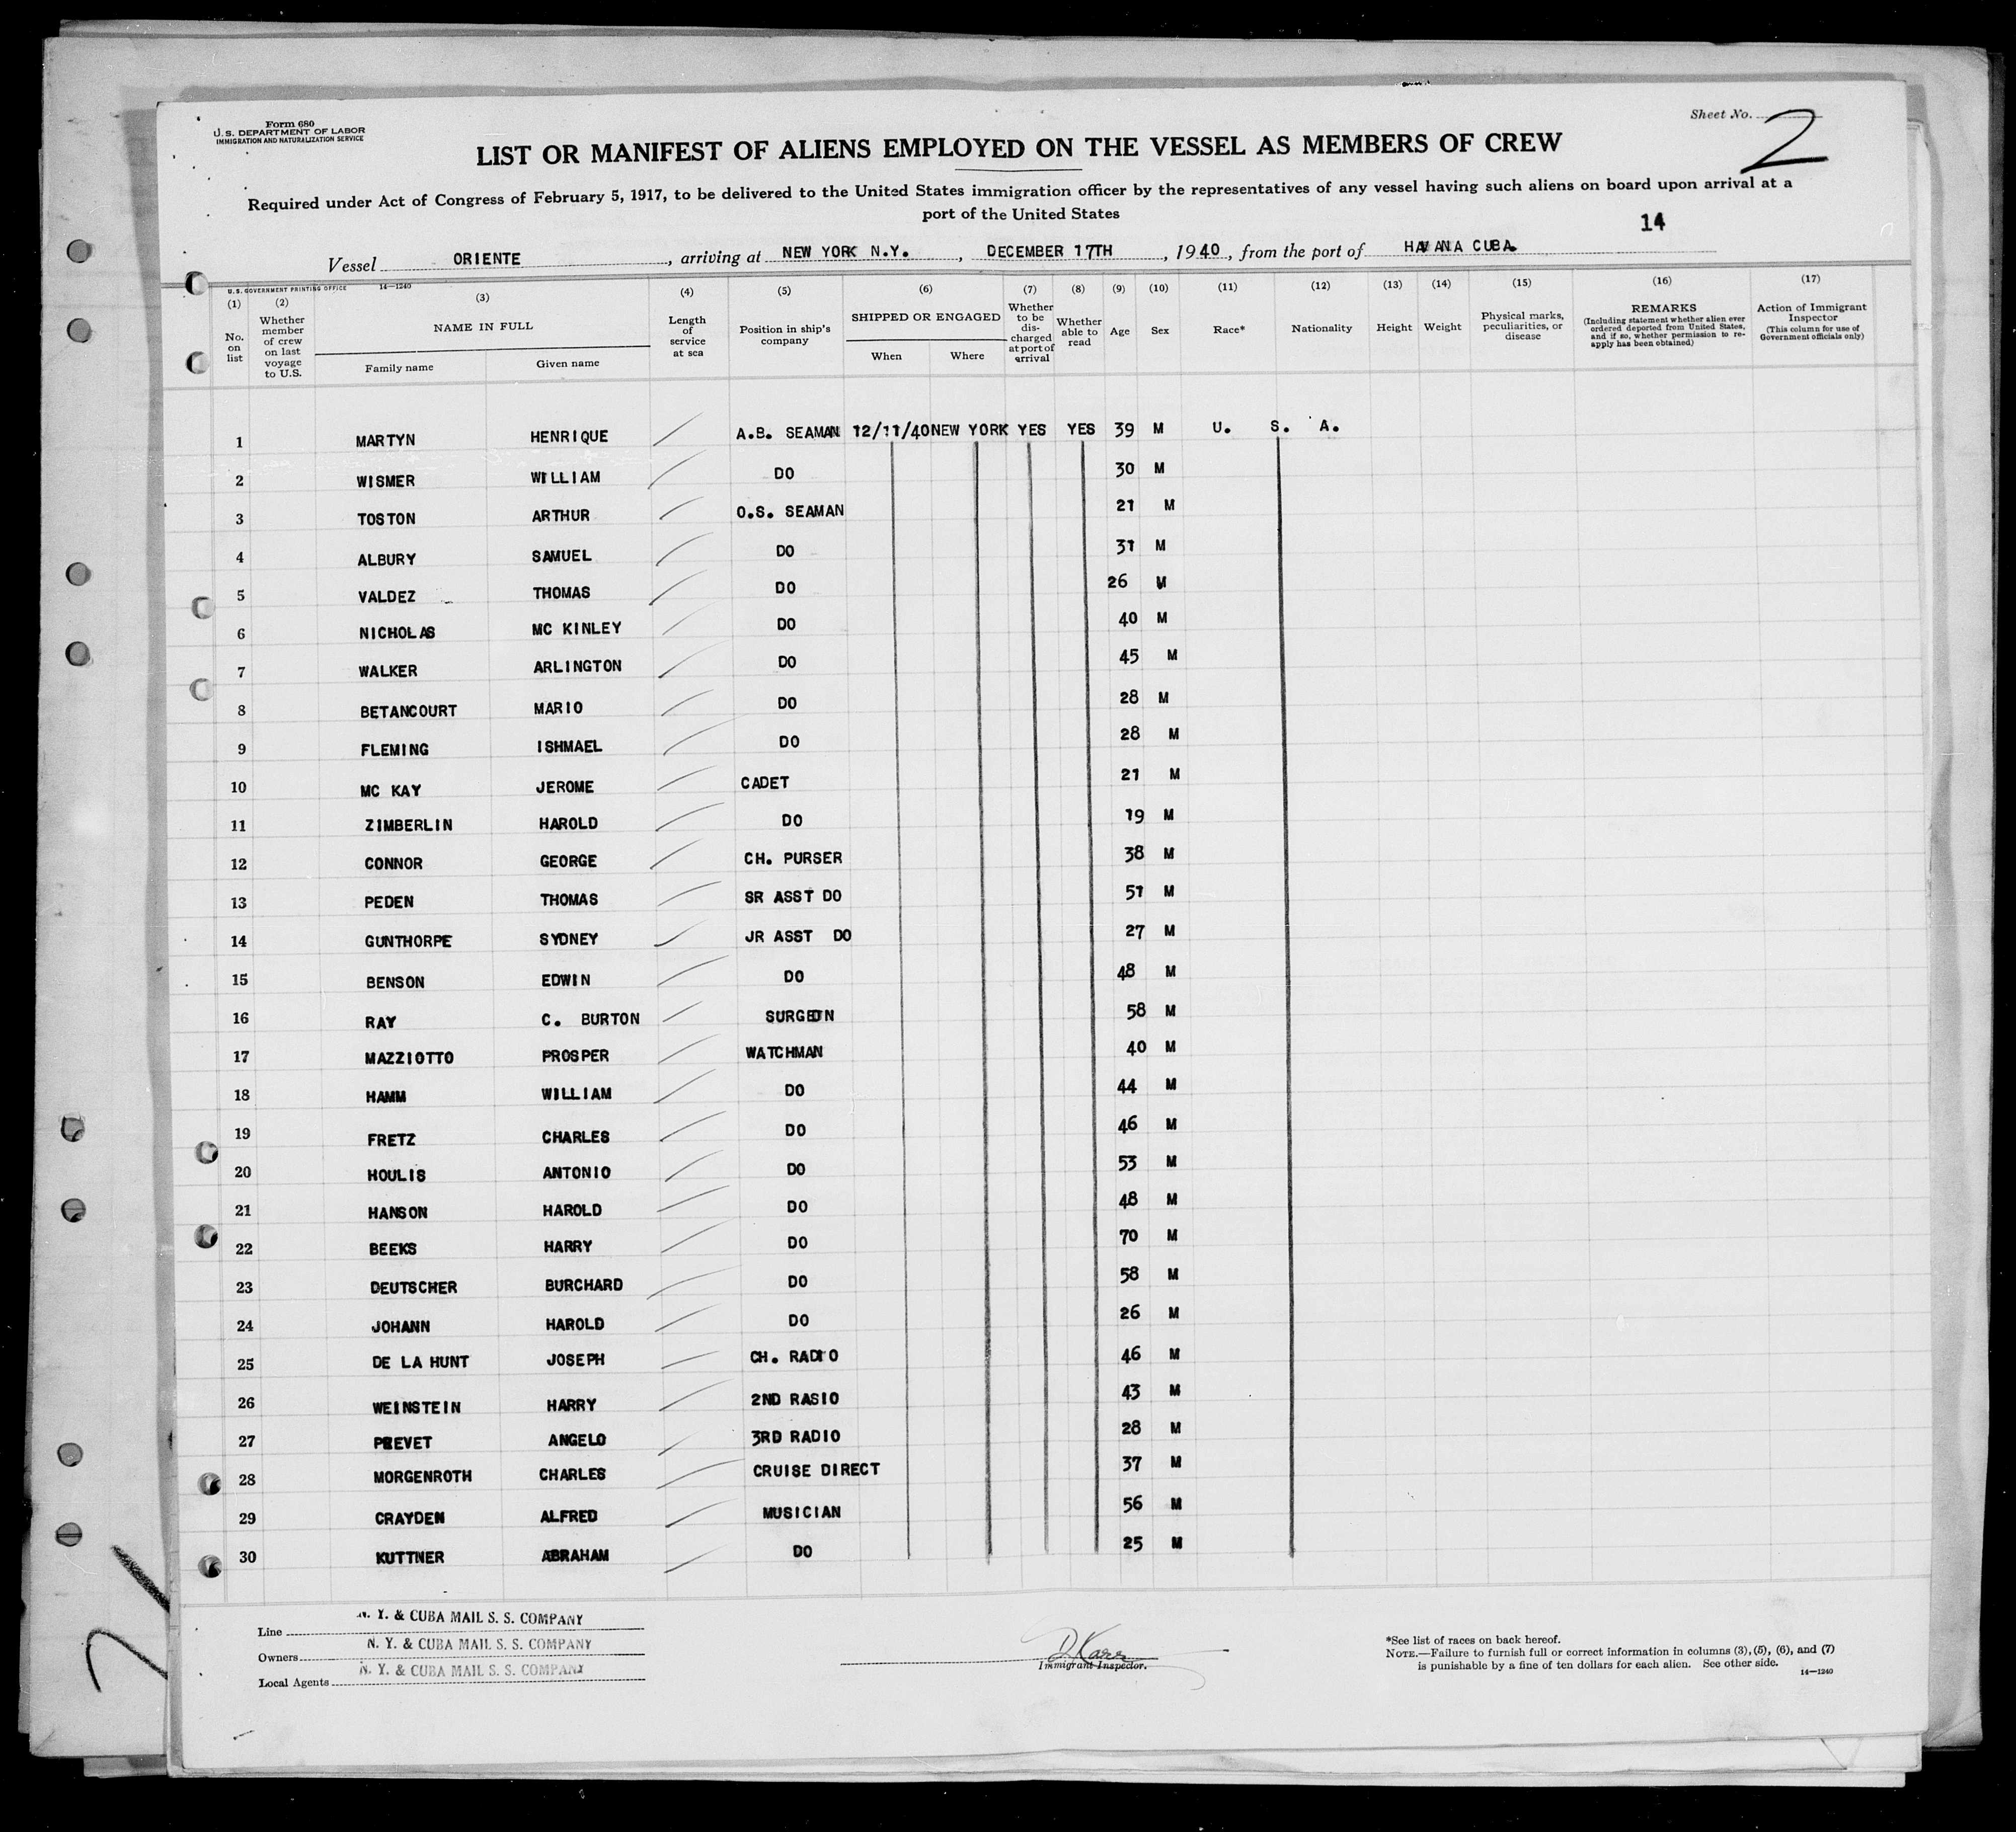 Form 680
U. S. DEPARTMENT OF LABOR
IMMIGRATION AND NATURALIZATION SERVICE
Sheet No. 2
LIST OR MANIFEST OF ALIENS EMPLOYED ON THE VESSEL AS MEMBERS OF CREW
Required under Act of Congress of February 5, 1917, to be delivered to the United States immigration officer by the representatives of any vessel having such aliens on board upon arrival at a
port of the United States
14
Vessel ORIENTE, arriving at NEW YORK N.Y., DECEMBER 17TH, 1940, from the port of HAVANA CUBA.
U. S. GOVERNMENT PRINTING OFFICE 14—1240
(1) No. on list
(2) Whether member of crew on last voyage to U.S.
(3) NAME IN FULL Family name Given name
(4) Length of service at sea
(5) Position in ship's company
(6) SHIPPED OR ENGAGED When Where
(7) Whether to be discharged at port of arrival
(8) Whether able to read
(9) Age
(10) Sex
(11) Race*
(12) Nationality
(13) Height
(14) Weight
(15) Physical marks, peculiarities, or disease
(16) REMARKS (Including statement whether alien ever ordered deported from United States, and if so, whether permission to reapply has been obtained)
(17) Action of Immigrant Inspector (This column for use of Government officials only)
1 MARTYN HENRIQUE A.B. SEAMAN 12/11/40 NEW YORK YES YES 39 M U. S. A.
2 WISMER WILLIAM DO 30 M
3 TOSTON ARTHUR O.S. SEAMAN 21 M
4 ALBURY SAMUEL DO 31 M
5 VALDEZ THOMAS DO 26 M
6 NICHOLAS MC KINLEY DO 40 M
7 WALKER ARLINGTON DO 45 M
8 BETANCOURT MARIO DO 28 M
9 FLEMING ISHMAEL DO 28 M
10 MC KAY JEROME CADET 21 M
11 ZIMBERLIN HAROLD DO 19 M
12 CONNOR GEORGE CH. PURSER 38 M
13 PEDEN THOMAS SR ASST DO 51 M
14 GUNTHORPE SYDNEY JR ASST DO 27 M
15 BENSON EDWIN DO 48 M
16 RAY C. BURTON SURGEON 58 M
17 MAZZIOTTO PROSPER WATCHMAN 40 M
18 HAMM WILLIAM DO 44 M
19 FRETZ CHARLES DO 46 M
20 HOULIS ANTONIO DO 53 M
21 HANSON HAROLD DO 48 M
22 BEEKS HARRY DO 70 M
23 DEUTSCHER BURCHARD DO 58 M
24 JOHANN HAROLD DO 26 M
25 DE LA HUNT JOSEPH CH. RADIO 46 M
26 WEINSTEIN HARRY 2ND RASIO 43 M
27 PREVET ANGELO 3RD RADIO 28 M
28 MORGENROTH CHARLES CRUISE DIRECT 37 M
29 CRAYDEN ALFRED MUSICIAN 56 M
30 KUTTNER ABRAHAM DO 25 M
Line N. Y. & CUBA MAIL S. S. COMPANY
Owners N. Y. & CUBA MAIL S. S. COMPANY
Local Agents N. Y. & CUBA MAIL S. S. COMPANY
D Karr
Immigrant Inspector.
*See list of races on back hereof.
NOTE.—Failure to furnish full or correct information in columns (3), (5), (6), and (7)
is punishable by a fine of ten dollars for each alien. See other side.
14—1240